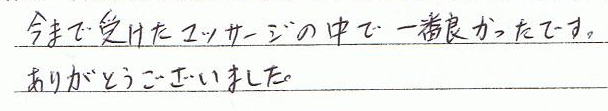 今まで受けたマッサージの中で一番良かったです。
ありがとうございました。